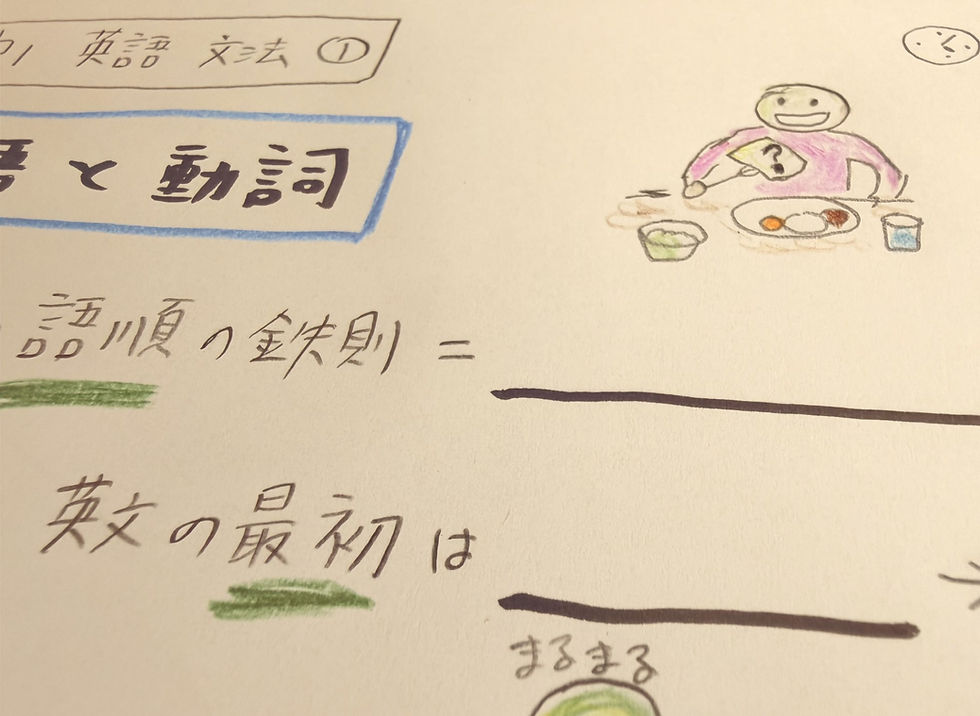 英語 文法 ①
語と動詞
?
語順の鉄則=
英文の最初は
まるまる